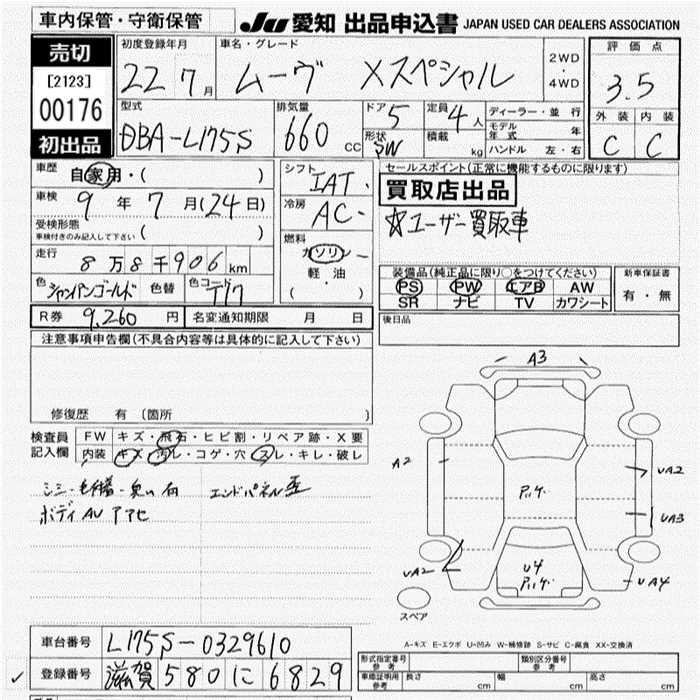 車内保管・守衛保管
JU 愛知 出品申込書 JAPAN USED CAR DEALERS ASSOCIATION
売切
[2123]
00176
初出品
初度登録年月
22 7月
車名・グレード
ムーヴ Xスペシャル
2WD
・
4WD
評価点
3.5
外装 内装
C C
型式
DBA-L175S
排気量
660 cc
ドア 5
形状 SW
定員 4人
積載 kg
ディーラー・並行
モデル年式 年
ハンドル 左・右
車歴 自家用・( )
車検 9年 7月(24日)
受検形態
車検付きのみ記入して下さい ( )
走行 8万8千906km
色 シャンパンゴールド 色替 色コード T17
シフト IAT・
冷房 AC-
燃料
ガソリン
軽・油
( )
セールスポイント(正常に機能するものに限ります)
買取店出品
☆ユーザー買取車
装備品(純正品に限り○をつけてください)
PS PW エアB AW
SR ナビ TV カワシート
新車保証書
有・無
後日品
R券 9,260円 名変通知期限 月 日
注意事項申告欄(不具合内容等は具体的に記入して下さい)
修復歴 有 〔箇所 〕
検査員記入欄
FW キズ・飛石・ヒビ割・リペア跡・X要
内装 キズ・汚レ・コゲ・穴・スレ・キレ・破レ
エンドパネル歪
ボディAU アアセ
A3
A2
UA2
UA3
UA2
U4
UA4
スペア
A-キズ E-エクボ U-凹み W-補修跡 S-サビ C-腐食 XX-交換済
車台番号 L175S-0329610
登録番号 滋賀 580 に 6829
型式指定番号 参考
類別区分番号 参考
車庫証明用 参考 長さ cm 幅 cm 高さ cm